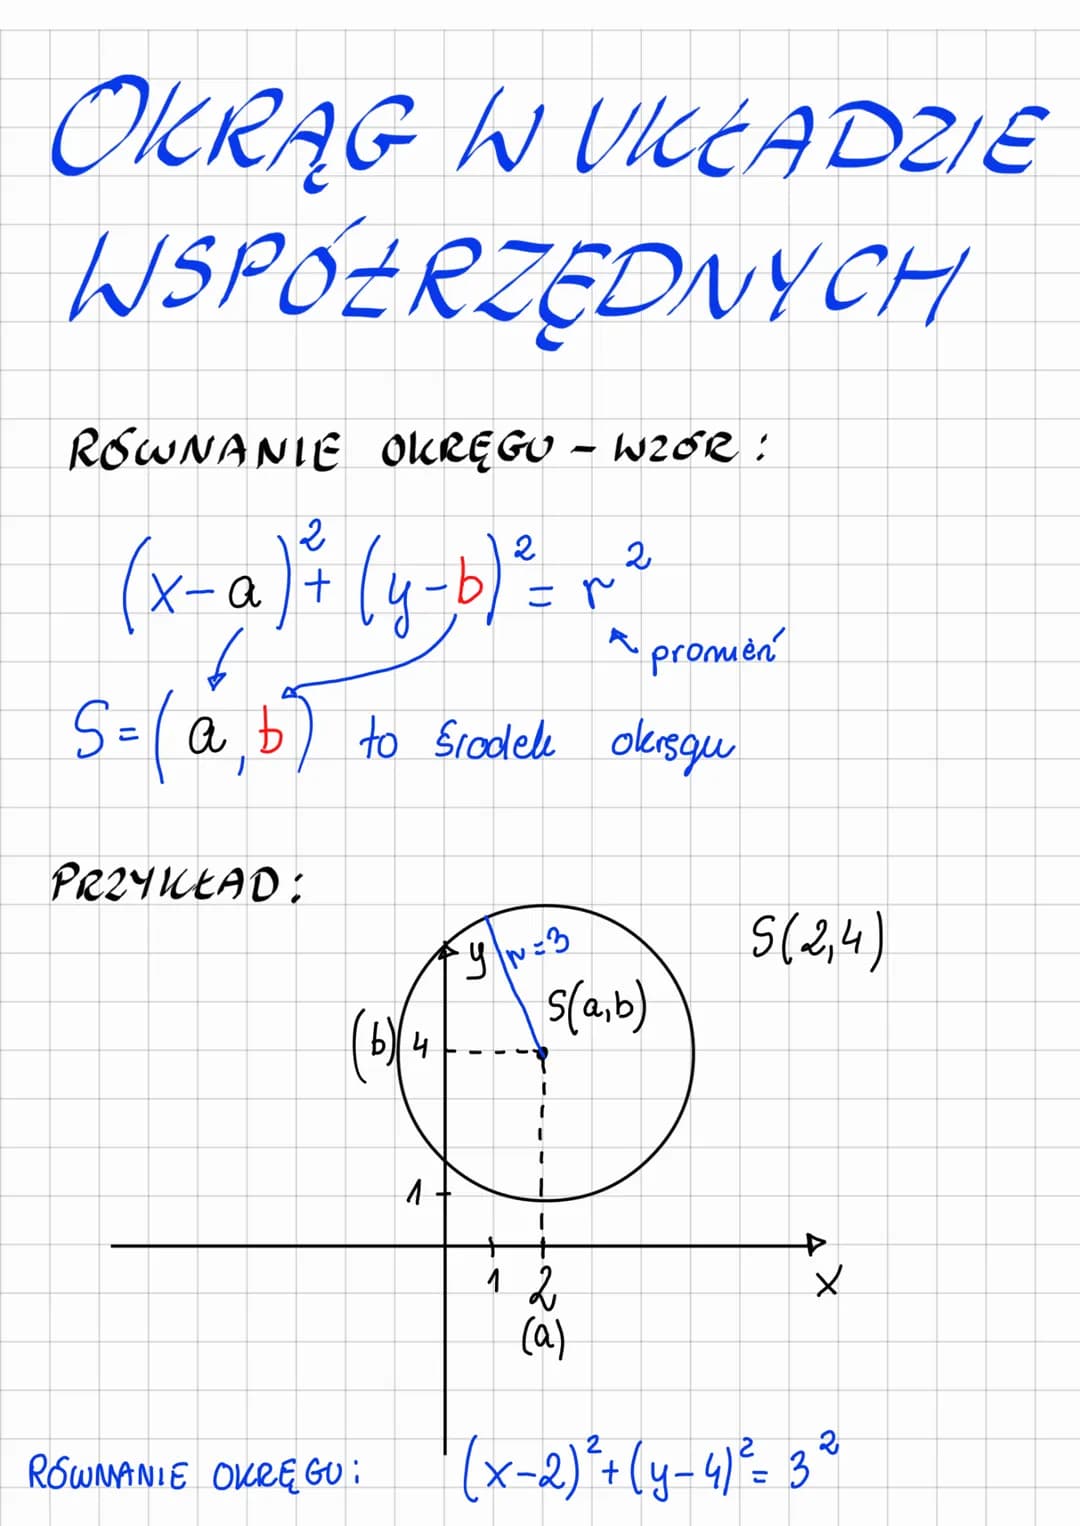 OKRĄG W UKŁADZIE
WSPÓŁRZĘDNYCH
RÓWNANIE OKRĘGU - WZÓR :
(x-a)² + (y-b)² = r²
promień
S=(a,b) to środek okręgu
PRZYKŁAD:
S(2,4)
y r=3
S(a,b)
(b) 4
1
1 2 x
(a)
RÓWNANIE OKRĘGU: (x-2)²+(y-4)²= 3²